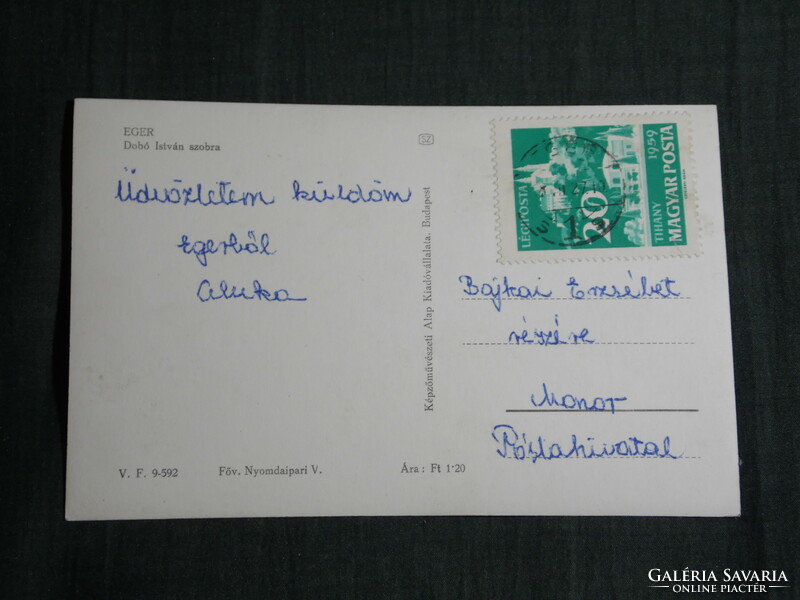 EGER
Dobó István szobra
Üdvözletem küldöm
Egerből
Aluka
V. F. 9-592
Főv. Nyomdaipari V.
Ára : Ft 1·20
Képzőművészeti Alap Kiadóvállalata, Budapest
LÉGIPOSTA
20
TIHANY
1959
MAGYAR POSTA
EGER
Bajkai Erzsébet
részére
Monor
Póstahivatal
GALÉRIA SAVARIA
ONLINE PIACTÉR